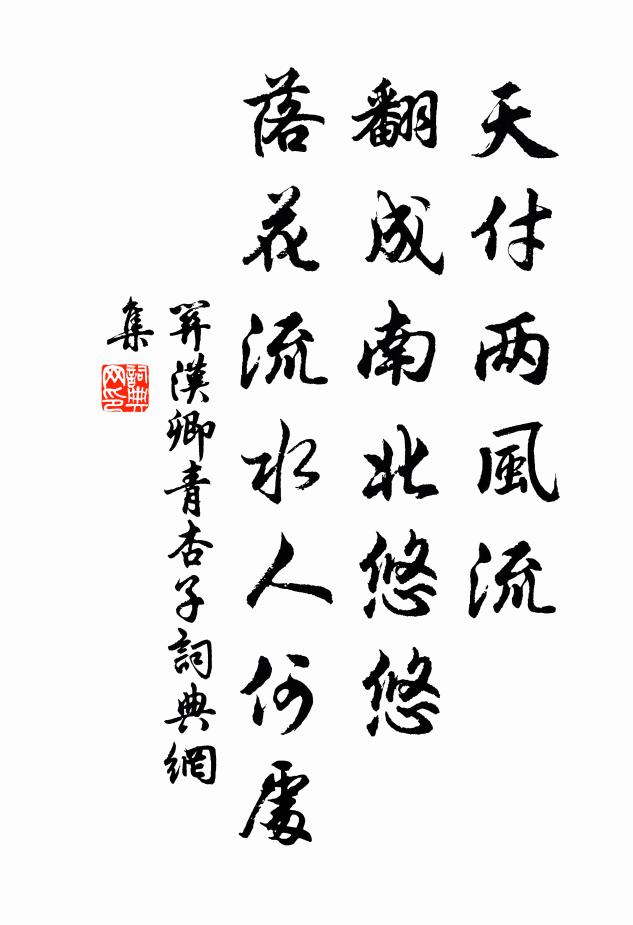 天付两風流
翻成南北悠悠
落花流水人何處
関漢卿青杏子詞典網
集
詞典
网印